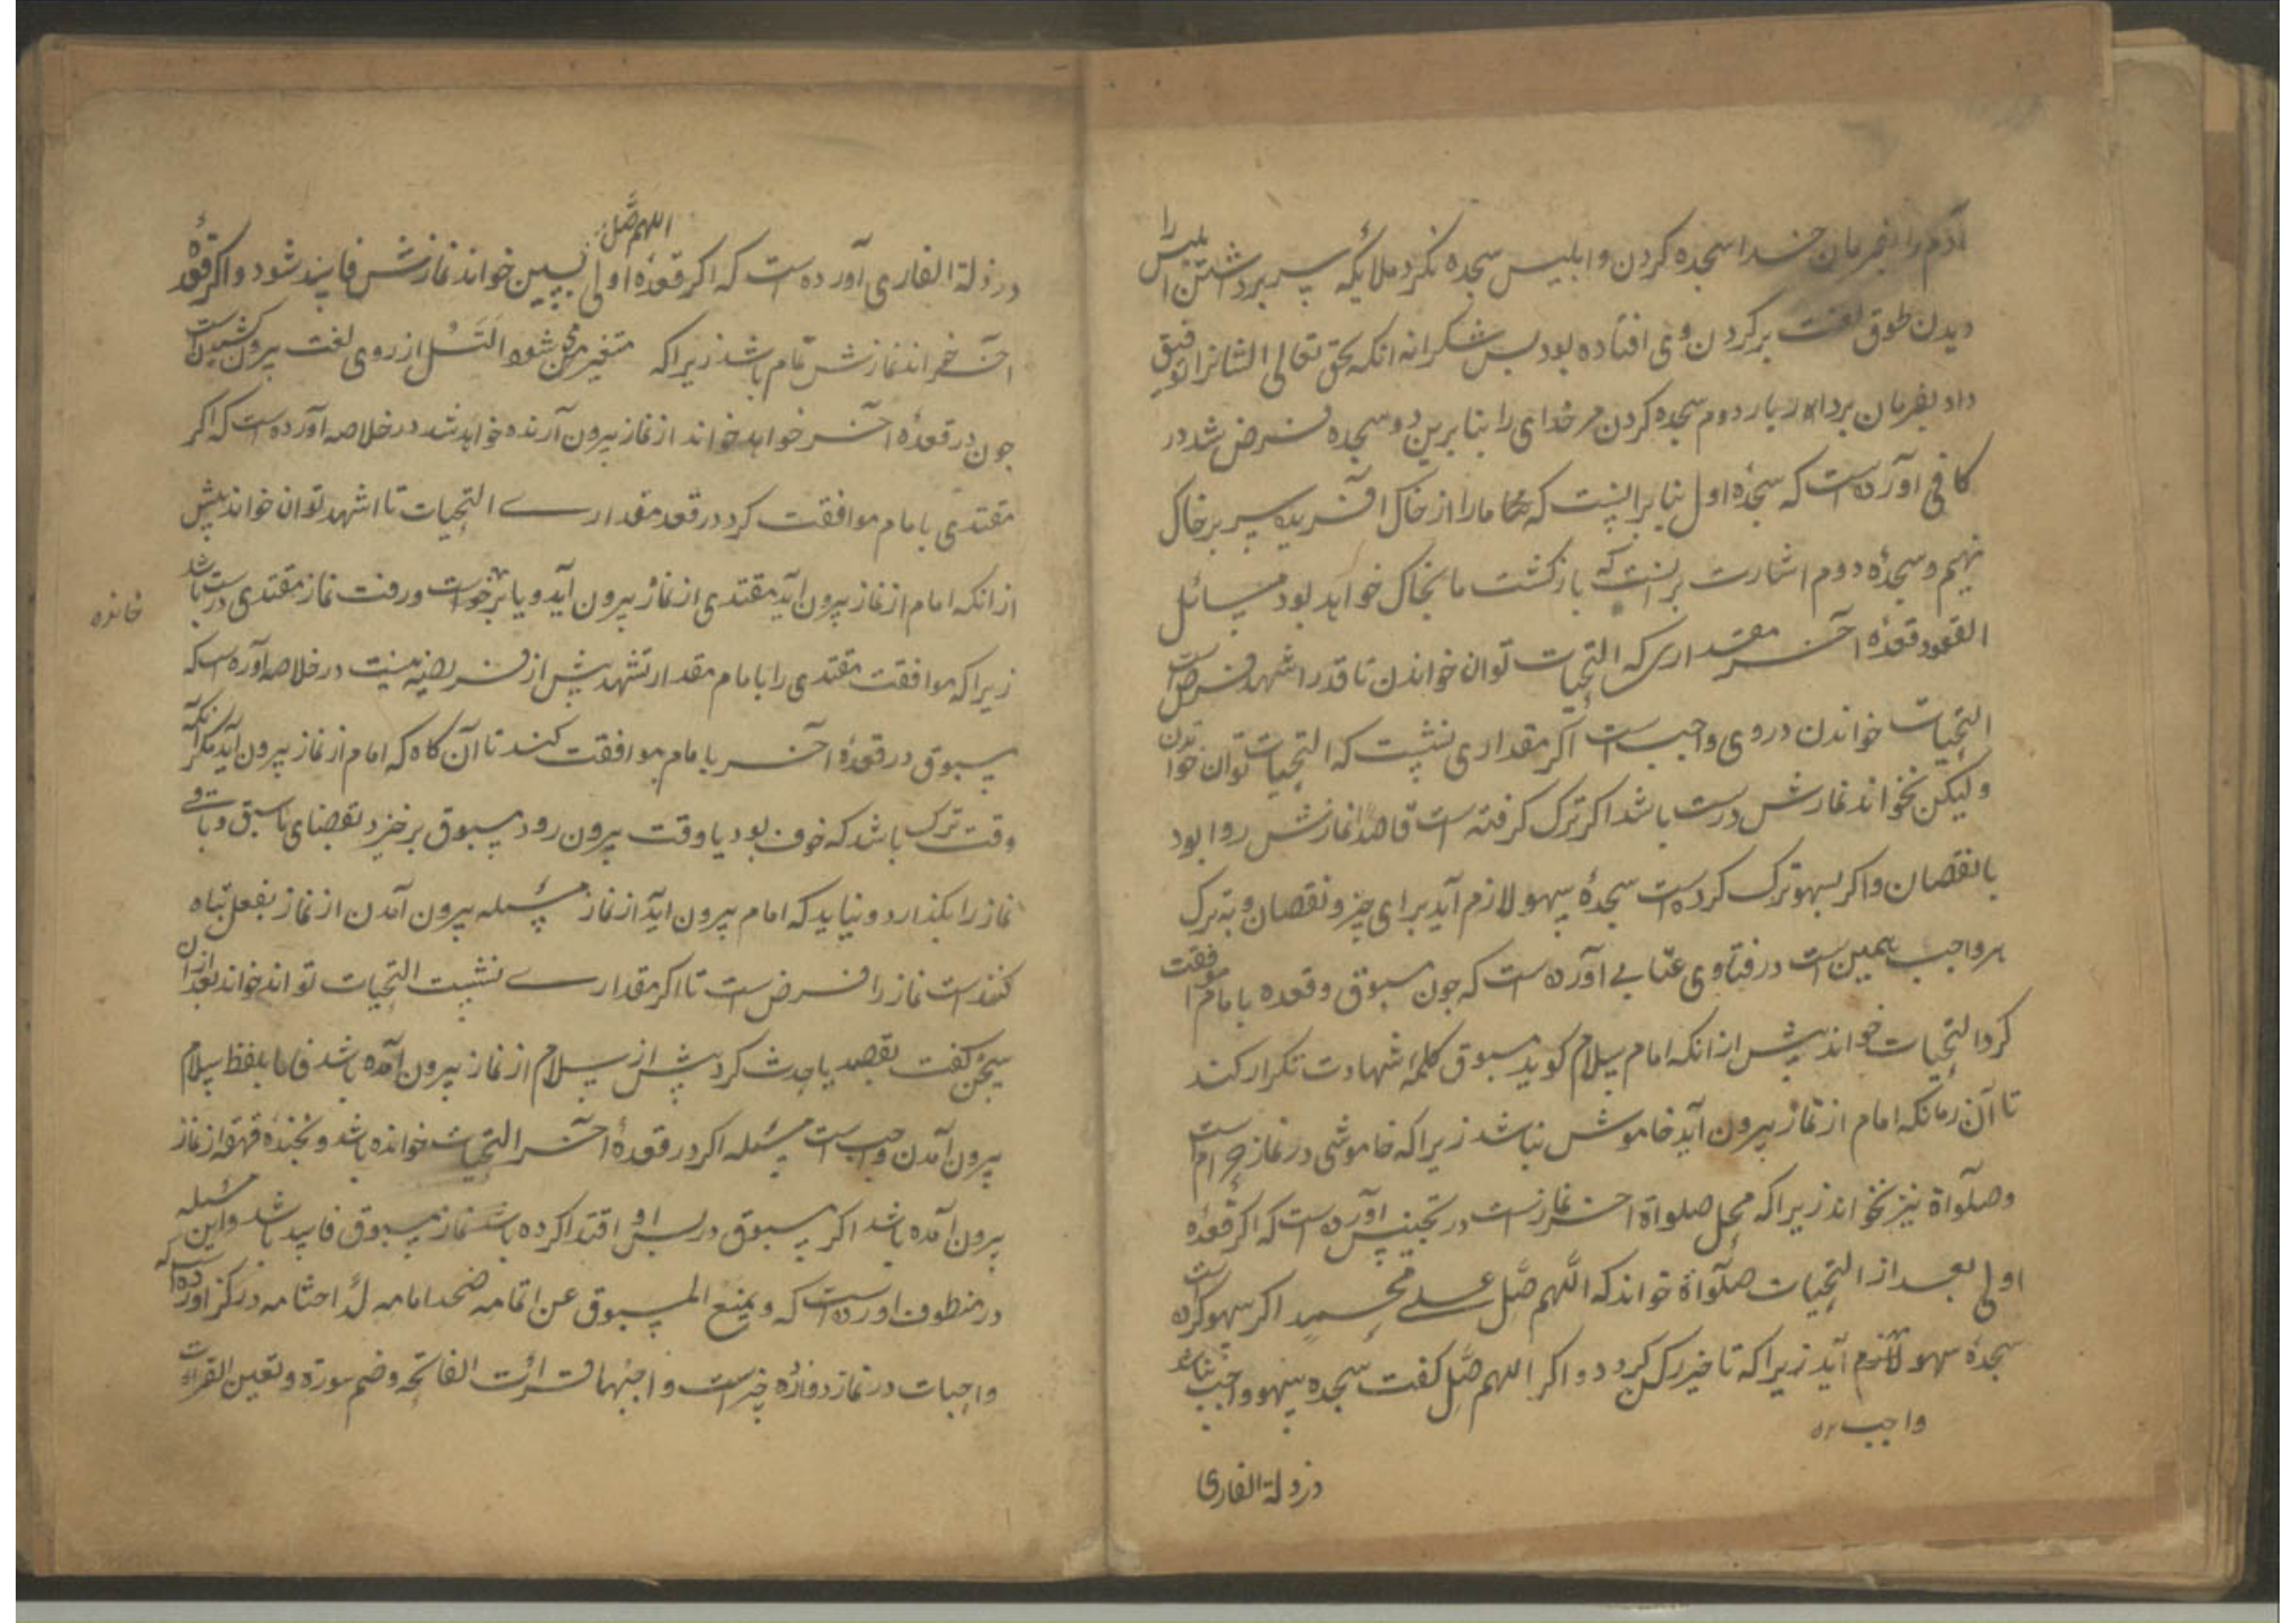 آدم را بفرمان خدا سجده کردن و ابلیس سجده نکرد ملایکه سر برداشتن ابلیس را
دیدن طوق لعنت بر کردن وی افتاده بود پس شکرانه انکه حق تعالی ایشانرا توفیق
داد بفرمان برداری بار دوم سجده کردن مر خدای را بنا برین دو سجده فرض شد در
کافی آورده است که سجدۀ اول بنا بر اینست که ما را از خاک افریده سر بر خاک
نهیم و سجدۀ دوم اشارت بر انست که بازکشت ما بخاک خواهد بود مسائل
القعود قعدۀ آخر مقداری که التحیات توان خواندن تا قدر اشهد فرض است
التحیات خواندن در وی واجب است اکر مقداری نشست که التحیات توان خواندن
ولیکن نخواند نمازش درست باشد اکر ترک کرفته است قاصدا نمازش روا بود
با نقصان و اکر بسهو ترک کرده است سجدۀ سهو لازم آید برای جبر نقصان و بترک
هر واجب همین است در فتاوی عتابی آورده است که جون مسبوق و قعده با امام موافقت
کرد التحیات خواند پیش از انکه امام سلام کوید مسبوق کلمۀ شهادت تکرار کند
تا آن زمانکه امام از نماز بیرون آید خاموش نباشد زیراکه خاموشی در نماز حرام است
و صلوٰاة نیز نخواند زیراکه محل صلوٰاة آخر نمازست در تجنیس آورده است که اکر قعدۀ
اولی بعد از التحیات صلوٰاة خواند که اللّهم صَلّ علی محمد اکر سهو کرده
سجدۀ سهو لازم آید زیراکه تاخیر رکن کردد و اکر اللهم صَلّ کفت سجده سهو واجب نباشد
واجب
در زلة القاری
اللهم صَلّ
در زلة القاری آورده است که اکر قعدۀ اولی بسین خواند نمازش فاسد شود و اکر قعدۀ
آخر خواند نمازش تمام باشد زیراکه متغیر می شود السّل از روی لغت بیرون کشیدن است
جون در قعدۀ آخر خواهد خواند از نماز بیرون آرنده خواهد شد در خلاصه آورده است که اکر
مقتدی با امام موافقت کرد در قعده مقداری التحیات تا اشهد توان خواند پیش
از انکه امام از نماز بیرون اید مقتدی از نماز بیرون آید و یا برخواست و رفت نماز مقتدی درست باشد
خانده
زیراکه موافقت مقتدی را با امام مقدار تشهد بیش از فریضه نیست در خلاصه آورده است که
مسبوق در قعدۀ آخر با امام موافقت کند تا آن کاه که امام از نماز بیرون آید مکر آنکه
وقت ترک باشد که خوف بود یا وقت بیرون رود مسبوق بر خیزد بقضای ما سبق و باقی
نماز را بکذارد و نباید که امام بیرون اید از نماز مسئله بیرون آمدن از نماز بفعل تباه
کننده است نماز را فرض است تا اکر مقداری نشست التحیات تواند خواند بعد از ان
سخن کفت بقصد یا حدث کرد پیش از سلام از نماز بیرون آمده باشد فاما بلفظ سلام
بیرون آمدن واجب است مسئله اکر در قعدۀ آخر التحیات خوانده باشد و بخندۀ قهقه از نماز
بیرون آمده باشد اکر مسبوق در پس او اقتدا کرده باشد نماز مسبوق فاسد باشد و این مسئله
در منظومه آورده است که و یمنع المسبوق عن اتمامه ضحک امامه لدا اختتامه در کنز آورده است که
واجبات در نماز دوازده چیزست واجبها قرائت الفاتحه و ضم سورة و تعین القرأت